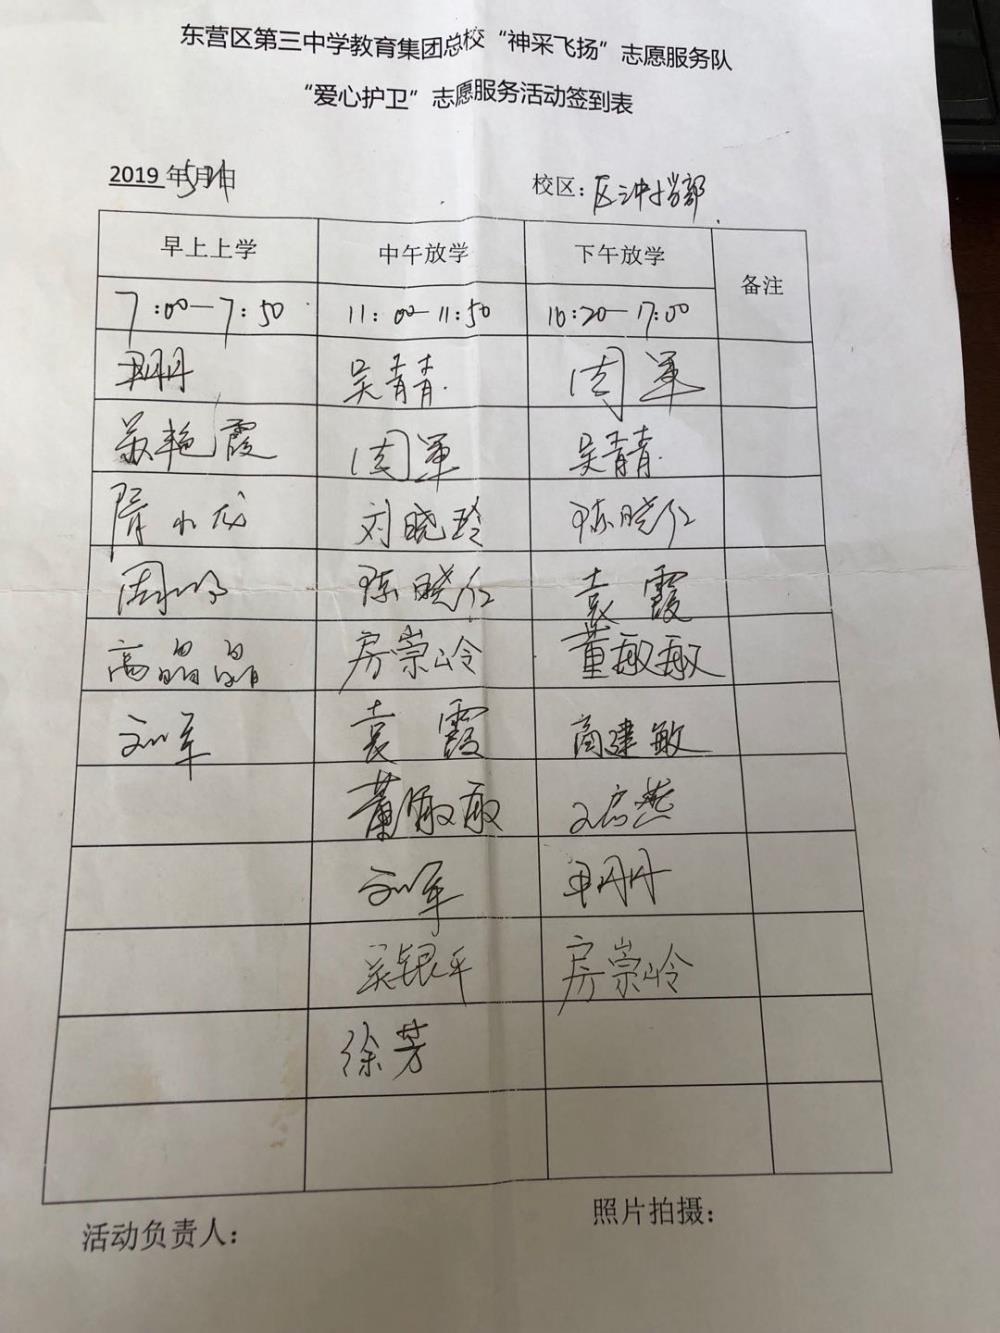 东营区第三中学教育集团总校“神采飞扬”志愿服务队
“爱心护卫”志愿服务活动签到表
2019 年5月21日 校区：区三中小学部
早上上学 中午放学 下午放学 备注
7:00—7:50 11:00—11:50 16:20—17:00
吴青青 周军
苏艳霞 周军 吴青青
隋小龙 刘晓玲 陈晓红
陈晓红 袁霞
高晶晶 房崇岭 董敏敏
刘军 袁霞 商建敏
董敏敏
刘军
吴银平 房崇岭
徐芳
活动负责人： 照片拍摄：